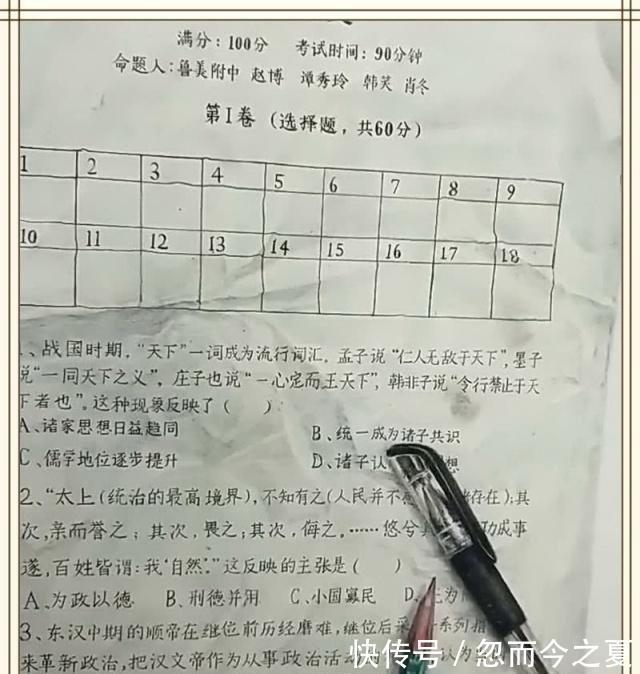 满分：100分 考试时间：90分钟
命题人：鲁美附中 赵博 谭秀玲 韩笑 肖冬
第I卷（选择题，共60分）
1 2 3 4 5 6 7 8 9
10 11 12 13 14 15 16 17 18
、战国时期，“天下”一词成为流行词汇。孟子说“仁人无敌于天下”，墨子
说“一同天下之义”，庄子也说“一心定而王天下”，韩非子说“令行禁止于天
下者也”。这种现象反映了（ ）
A、诸家思想日益趋同
B、统一成为诸子共识
C、儒学地位逐步提升
D、诸子认 想
2、“太上（统治的最高境界），不知有之（人民并不 存在）；其
次，亲而誉之；其次，畏之；其次，侮之。……悠兮 功成事
遂，百姓皆谓：我‘自然’。”这反映的主张是（ ）
A、为政以德 B、刑德并用 C、小国寡民 D、 为
3、东汉中期的顺帝在继位前历经磨难，继位后采 系列
来革新政治，把汉文帝作为从事政治活动 认为
快传号／忽而今之夏